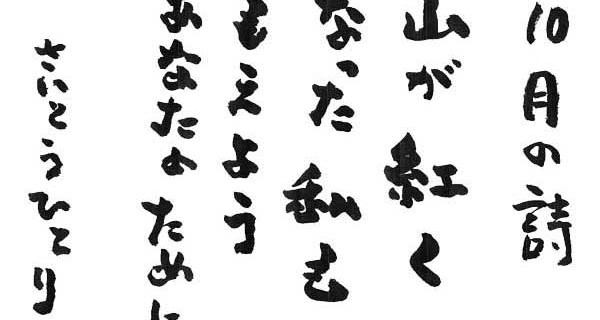 10月の詩
山が紅く
なった私も
もえよう
あなたの ために
さいとうひとり